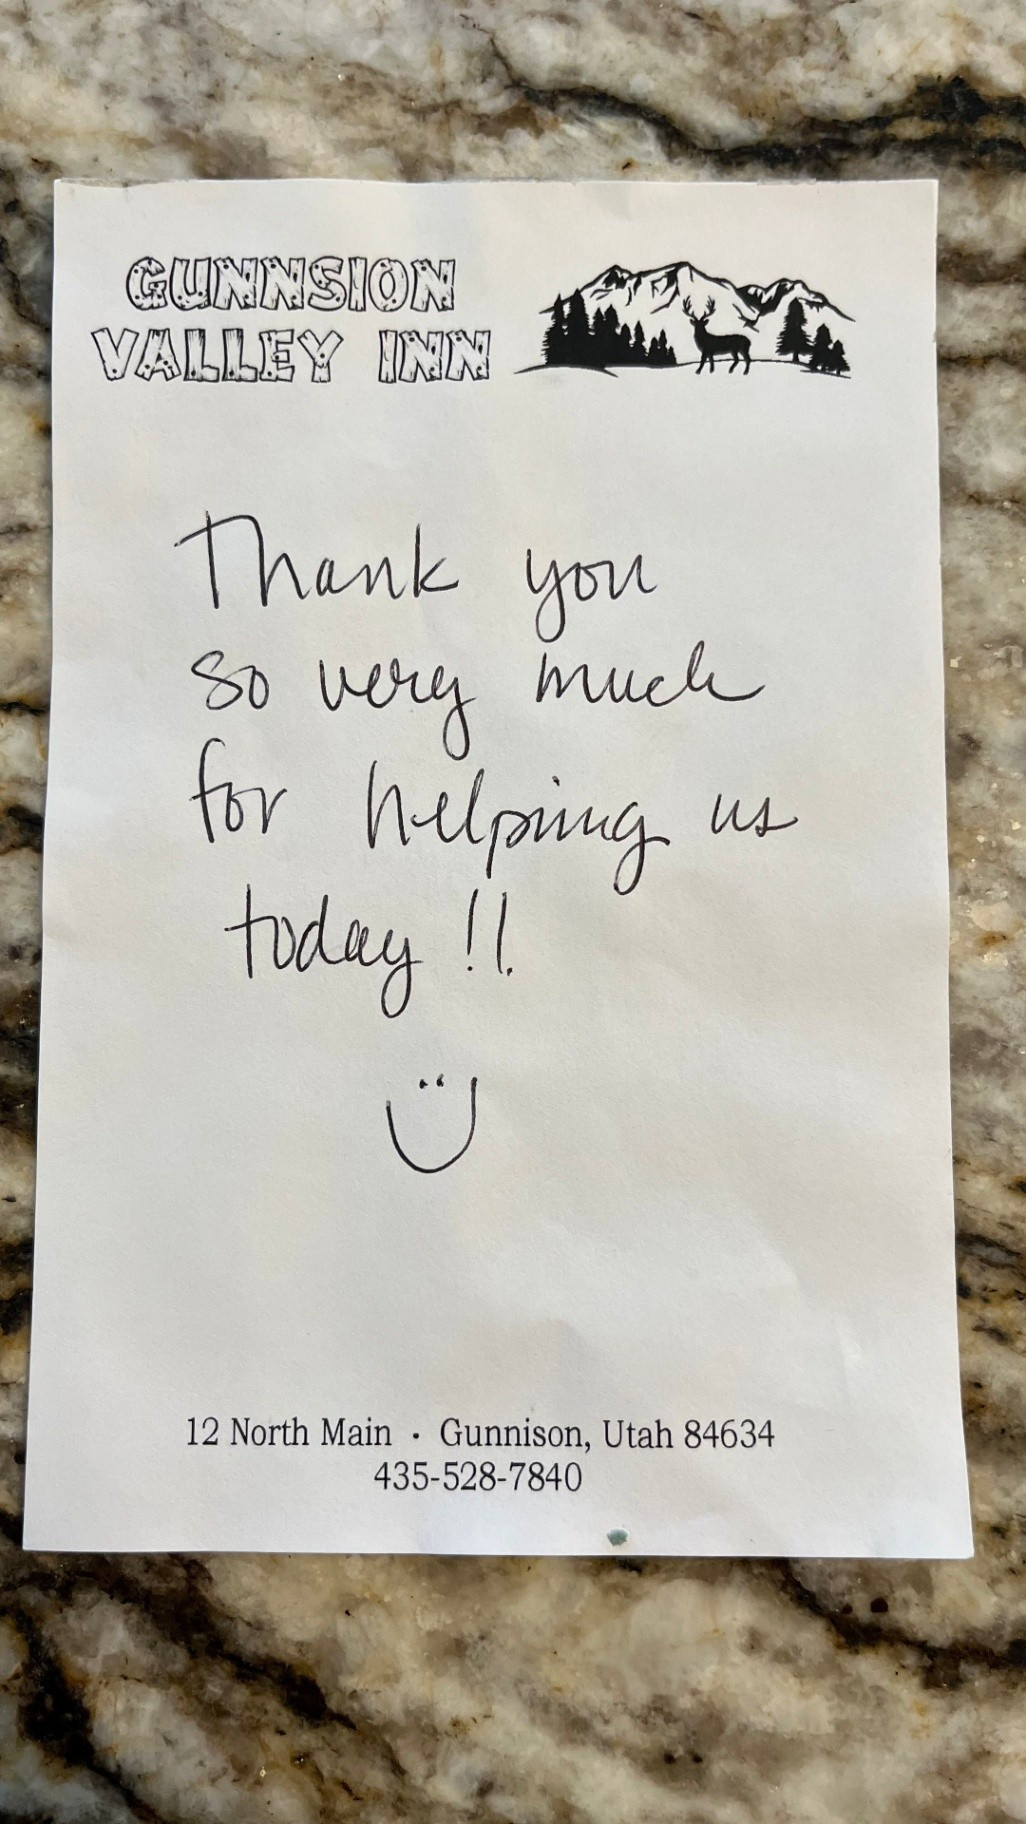 GUNNSION
VALLEY INN
Thank you
so very much
for helping us
today !!
12 North Main · Gunnison, Utah 84634
435-528-7840